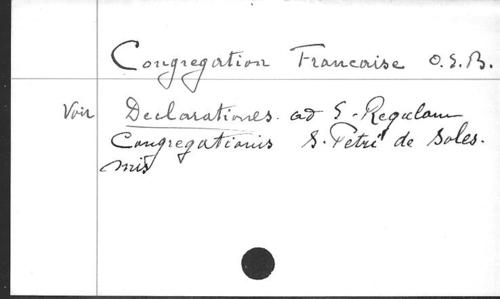 Congregation Francaise O.S.B.
Voir Declarationes. ad S. Regulam
Congregationis S. Petri de Soles.
mis